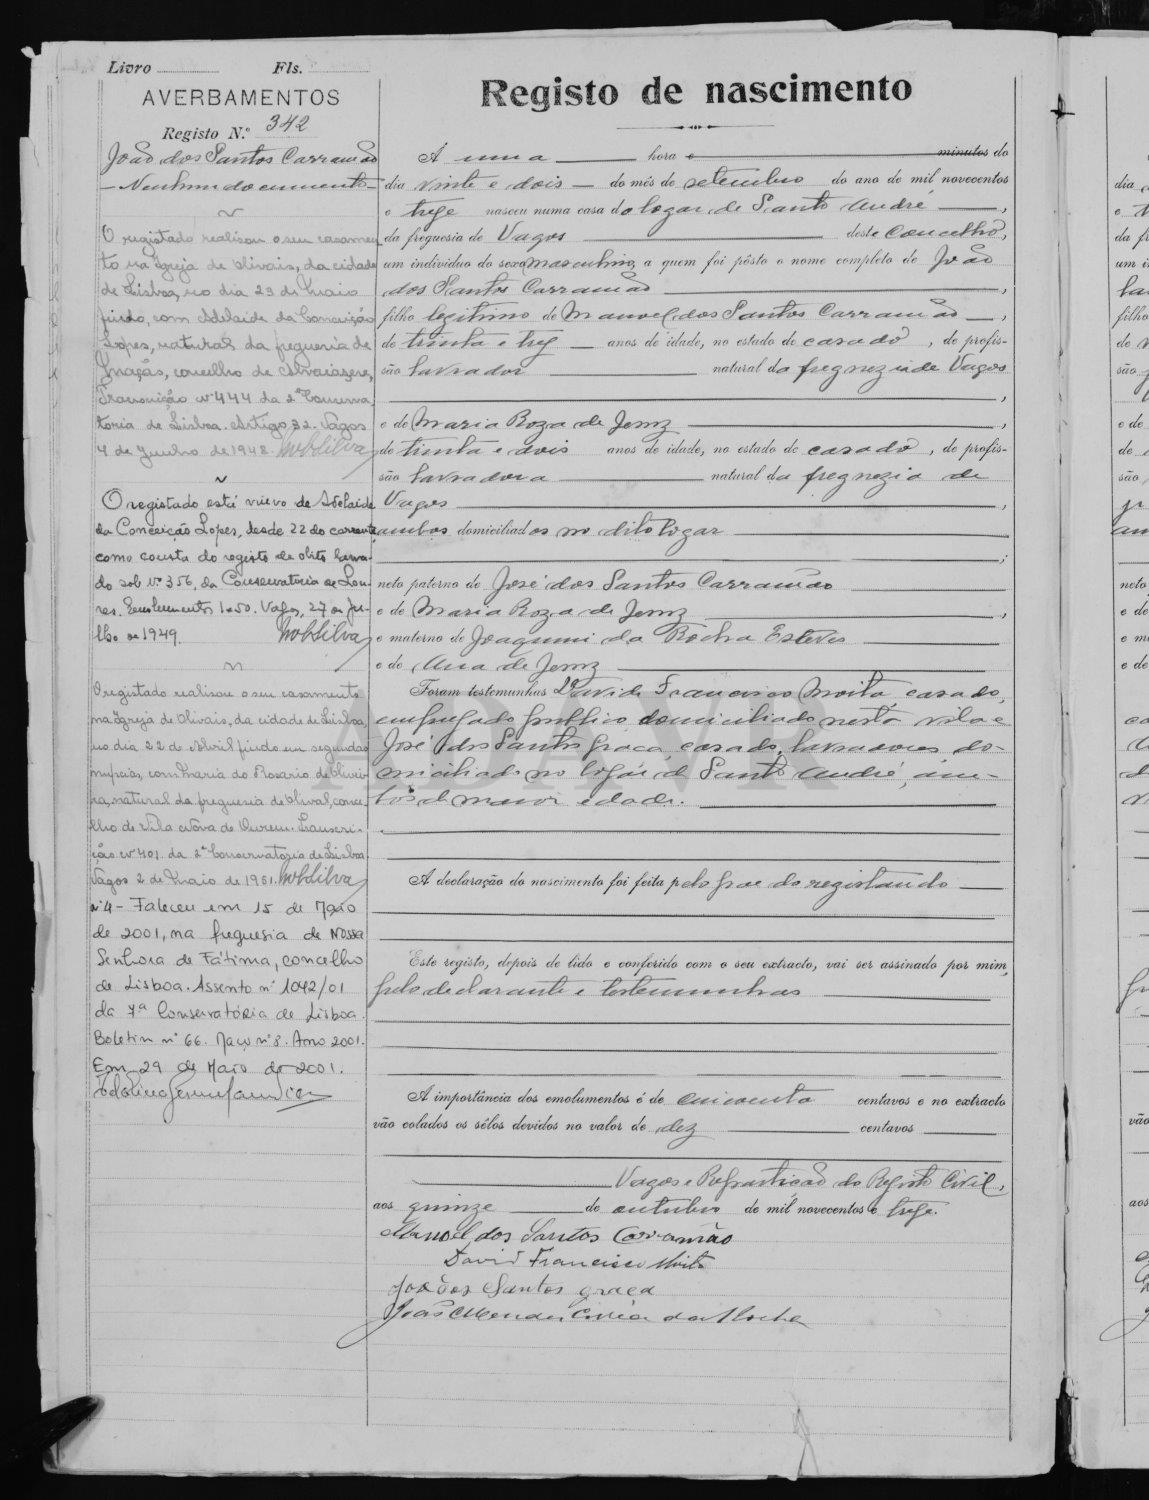 Livro Fls.
AVERBAMENTOS
Registo N.º 342
João dos Santos Carramão
— Nenhum documento —
O registado realisou o seu casamen
to na Igreja de Olivais, da cidade
de Lisboa, no dia 29 de Maio
findo, com Adelaide da Conceição
Lopes, natural da freguesia de
Maçãs, concelho de Alvaiázere,
Transcrição nº 444 da 2ª Conserva
toria de Lisboa. Artigo 32. Vagos
4 de Junho de 1948.
O registado está viuvo de Adelaide
da Conceição Lopes, desde 22 do corrente
como consta do registo de obito lavra-
do sob nº 356, da Conservatoria de Lou-
res. Emolumentos 1$50. Vagos, 27 de Ju-
lho de 1949.
O registado realisou o seu casamento
na Igreja de Olivais, da cidade de Lisboa,
no dia 22 de Abril findo em segundas
nupcias, com Maria do Rosario de Olivei-
ra, natural da freguesia de Olival, conce-
lho de Vila Nova de Ourem. Transcri-
ção nº 401 da 2ª Conservatoria de Lisboa.
Vagos 2 de Maio de 1951.
nº 4 - Faleceu em 15 de Maio
de 2001, na freguesia de Nossa
Senhora de Fátima, concelho
de Lisboa. Assento nº 1042/01
da 7ª Conservatória de Lisboa.
Boletim nº 66. Maço nº 8. Ano 2001.
Em 29 de Maio de 2001.
Registo de nascimento
Á uma hora e minutos do
dia vinte e dois do mês de setembro do ano de mil novecentos
e treze nasceu numa casa do logar de Santo André,
da freguesia de Vagos deste concelho,
um individuo do sexo masculino, a quem foi pôsto o nome completo de João
dos Santos Carramão,
filho legitimo de Manuel dos Santos Carramão,
de trinta e trez anos de idade, no estado de casado, de profis-
são lavrador natural da freguezia de Vagos
e de Maria Roza de Jemz,
de trinta e dois anos de idade, no estado de casado, de profis-
são lavradora natural da freguezia de
Vagos,
ambos domiciliados no dito logar
neto paterno de José dos Santos Carramão
e de Maria Roza de Jemz,
e materno de Joaquim da Rocha Esteves
e de Ana de Jemz
Foram testemunhas David Francisco Moita, casado,
empregado publico domiciliado nesta vila e
José dos Santos Graça casado, lavradores do-
miciliado no logar de Santo André, am-
bos de maior edade.
A declaração do nascimento foi feita pelo pae do registando
Este registo, depois de lido e conferido com o seu extracto, vai ser assinado por mim,
pelo declarante e testemunhas
A importância dos emolumentos é de cincoenta centavos e no extracto
vão colados os sêlos devidos no valor de dez centavos
Vagos e Repartição do Registo Civil,
aos quinze de outubro de mil novecentos e treze.
Manoel dos Santos Carramão
David Francisco Moita
José dos Santos Graça
João Mendes Correia da Rocha
ADAVR